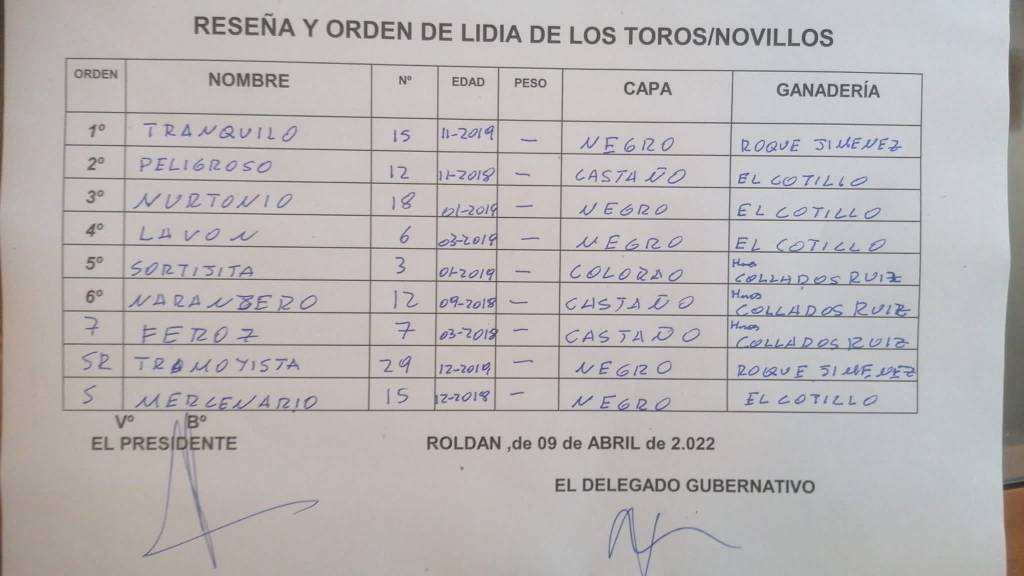 RESEÑA Y ORDEN DE LIDIA DE LOS TOROS/NOVILLOS
ORDEN NOMBRE Nº EDAD PESO CAPA GANADERÍA
1º TRANQUILO 15 11-2019 — NEGRO ROQUE JIMENEZ
2º PELIGROSO 12 11-2018 — CASTAÑO EL COTILLO
3º NURTONIO 18 01-2019 — NEGRO EL COTILLO
4º LAVON 6 03-2019 — NEGRO EL COTILLO
5º SORTIJITA 3 01-2019 — COLORAO Hnos COLLADOS RUIZ
6º NARANBERO 12 09-2018 — CASTAÑO Hnos COLLADOS RUIZ
7 FEROZ 7 03-2018 — CASTAÑO Hnos COLLADOS RUIZ
SR TRAMOYISTA 29 12-2019 — NEGRO ROQUE JIMENEZ
S MERCENARIO 15 12-2018 — NEGRO EL COTILLO
Vº Bº
EL PRESIDENTE ROLDAN ,de 09 de ABRIL de 2.022
EL DELEGADO GUBERNATIVO